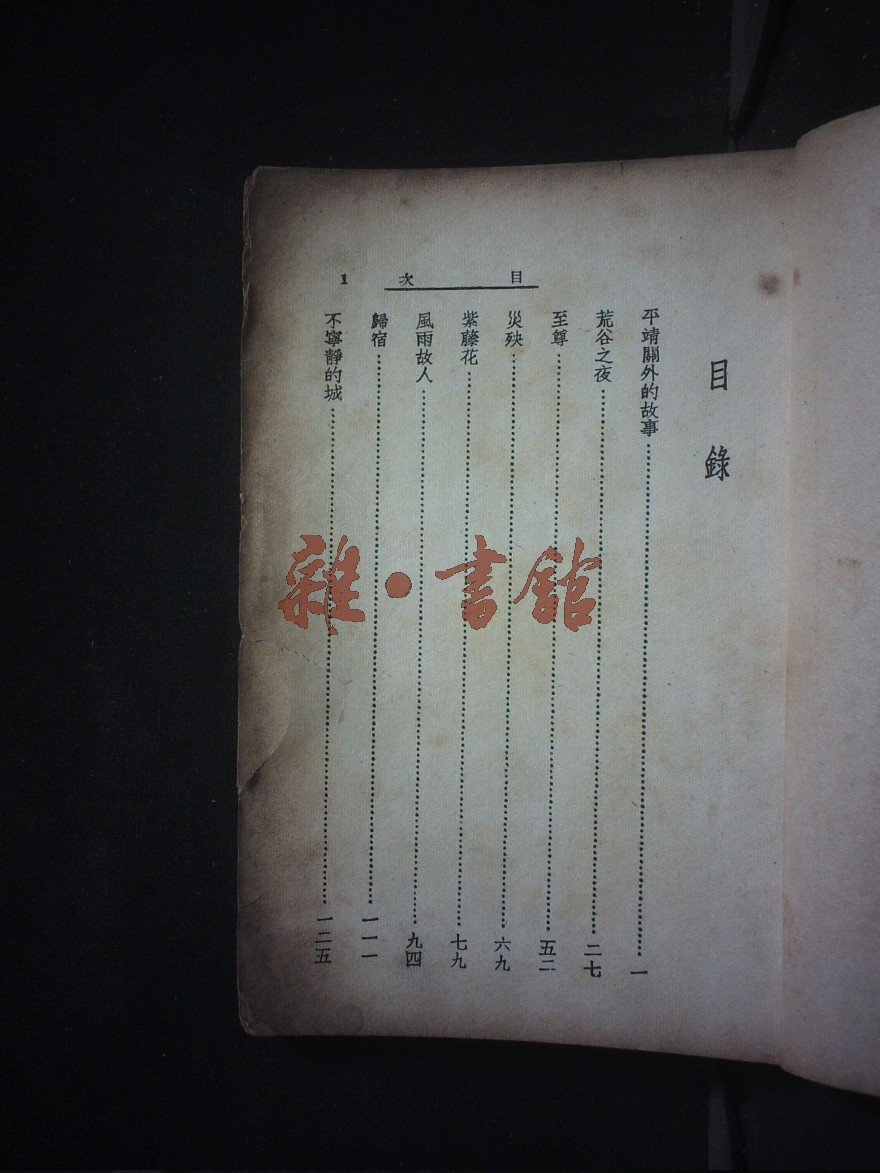 目次 1
目錄
平靖關外的故事…………一
荒谷之夜…………二七
至尊…………五二
災殃…………六九
紫藤花…………七九
風雨故人…………九四
歸宿…………一一一
不寧靜的城…………一二五
雜·書館